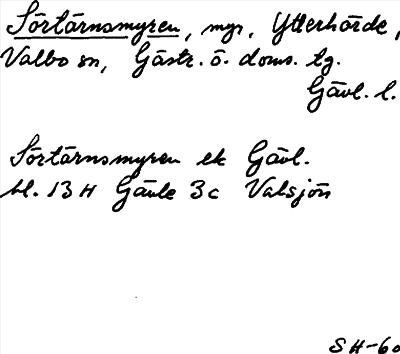 Sörtärnsmyren, myr, Ytterhärde,
Valbo sn, Gästr. ö. doms. tg.
Gävl. l.
Sörtärnsmyren ek Gävl.
bl. 13H Gävle 3c Valsjön
SH-60